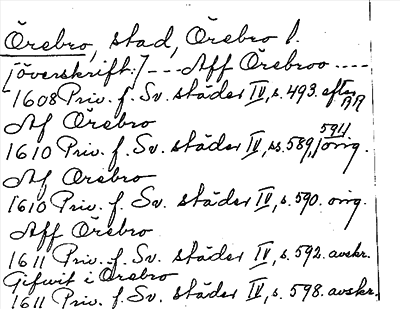 Örebro, stad, Örebro l.
[överskrift:] --- Aff Örebroo ----
1608 Priv. f. Sv. städer IV, s. 493. efter RR
Af Örebro
1610 Priv. f. Sv. städer IV, ss. 589, 591. orig.
Af Örebro
1610 Priv. f. Sv. städer IV, s. 590. orig.
Aff Örebro
1611 Priv. f. Sv. städer IV, s. 592. avskr.
Gifwit i Örebro
1611 Priv. f. Sv. städer IV, s. 598. avskr.